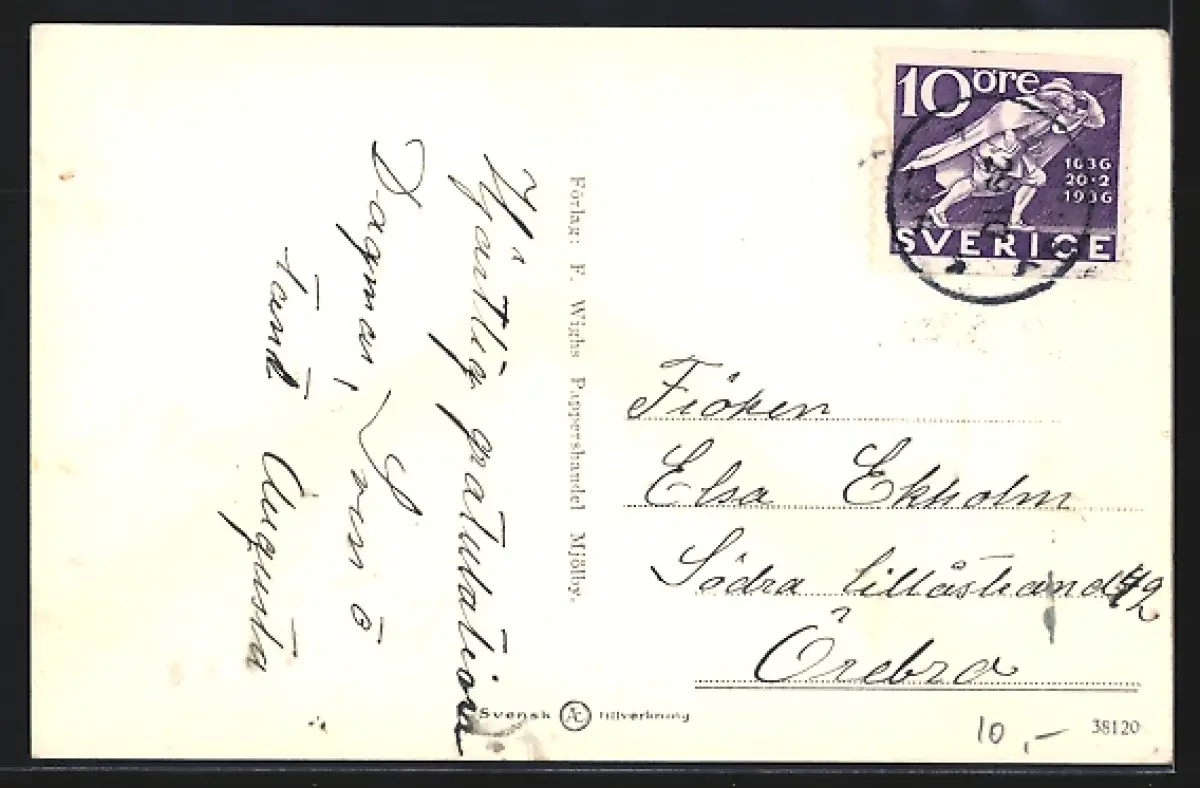 Hjärtlig gratulation
Dagmar, Sven o
Tant Augusta
Förlag: F. Wighs Pappershandel Mjölby.
10 öre
1636
20·2
1936
SVERIGE
Fröken
Elsa Ekholm
Södra Lillåstrand 42
Örebro
Svensk AC tillverkning
10,-
38120